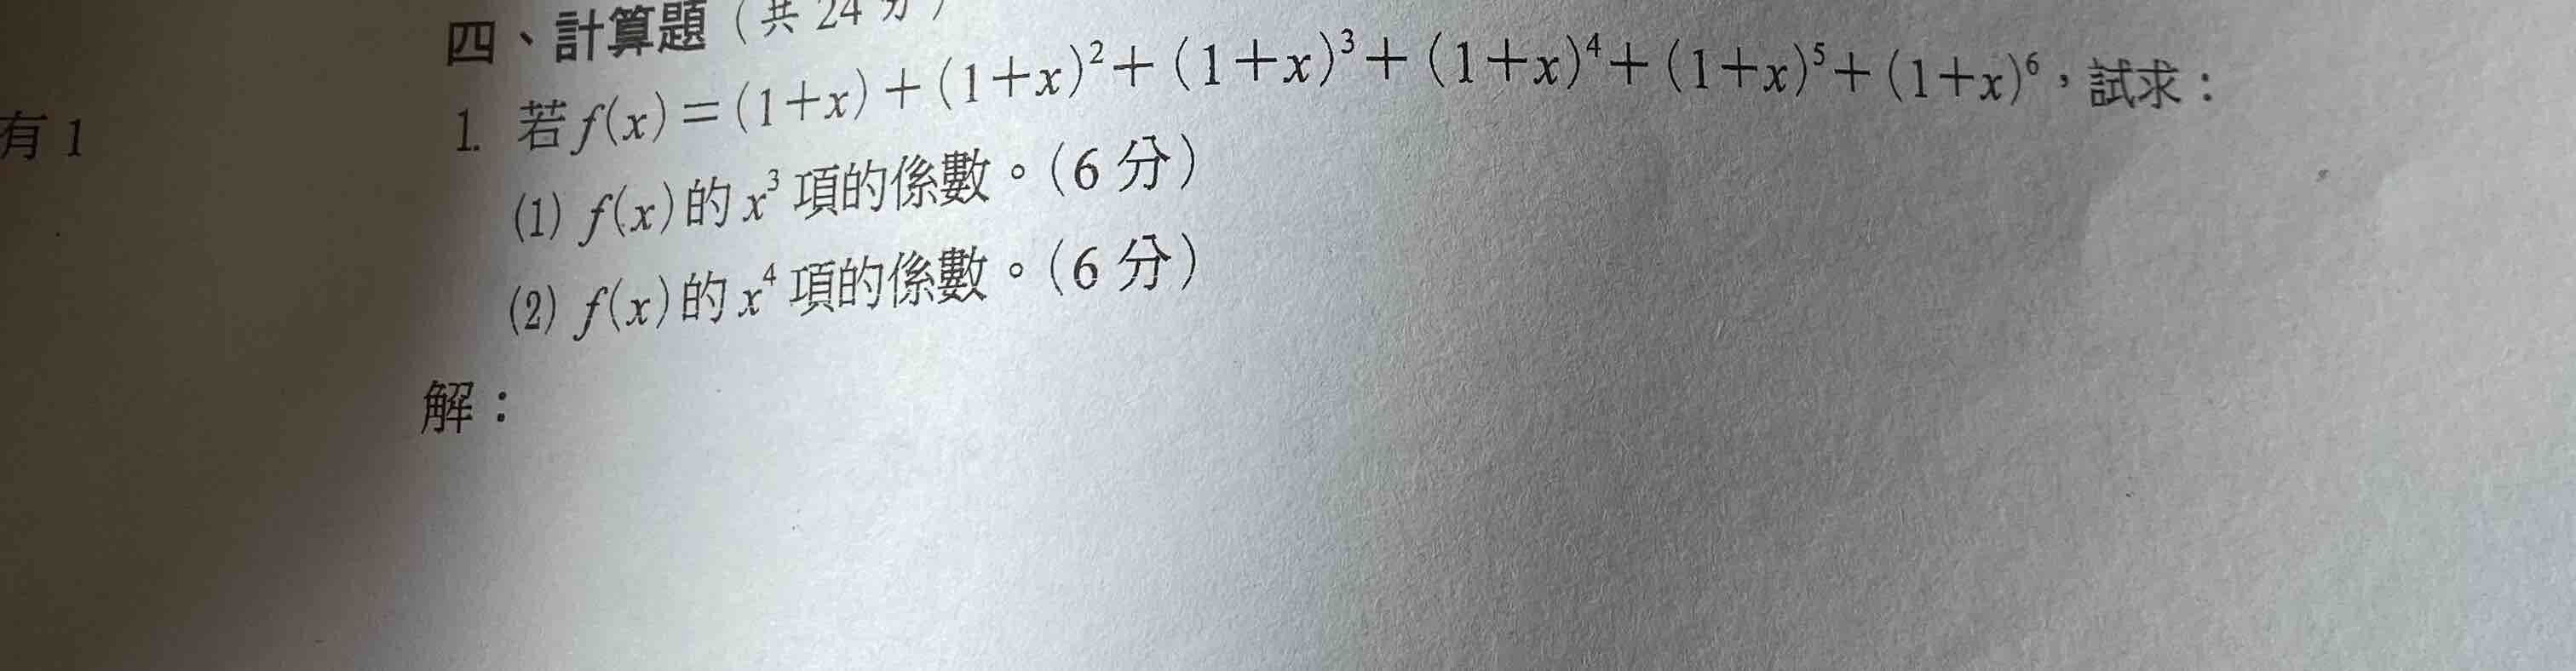 四、計算題（共 24 分）
1. 若 f(x)＝(1＋x)＋(1＋x)²＋(1＋x)³＋(1＋x)⁴＋(1＋x)⁵＋(1＋x)⁶，試求：
有 1
(1) f(x) 的 x³ 項的係數。（6 分）
(2) f(x) 的 x⁴ 項的係數。（6 分）
解：